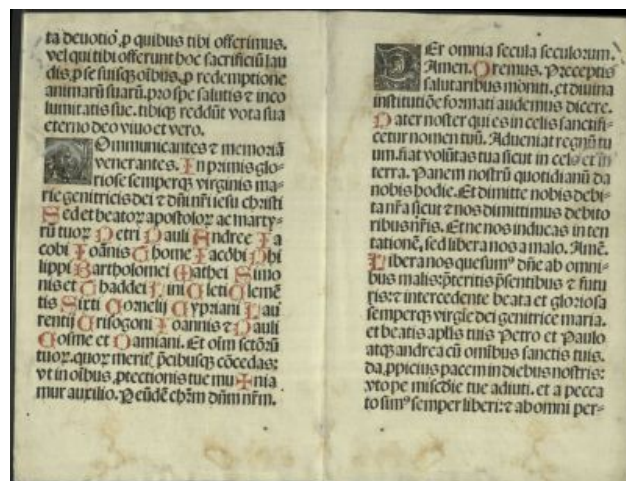 ta deuotio, p quibus tibi offerimus.
vel qui tibi offerunt hoc sacrificiũ lau
dis, p se suisq̃ oĩbus, p redemptione
animarũ suarũ. pro spe salutis ⁊ inco
lumitatis sue. tibiq̃ reddũt vota sua
eterno deo viuo et vero.
COmmunicantes ⁊ memoriã
venerantes. In primis glo-
riose semperq̃ virginis ma-
rie genitricis dei ⁊ dñi nr̃i iesu christi
Sed et beatoꝝ apostoloꝝ ac marty-
rũ tuoꝝ Petri Pauli Andree Ja
cobi Joãnis Thome Jacobi Phi
lippi Bartholomei Mathei Simo
nis et Thaddei Lini Cleti Clemẽ
tis Sixti Cornelij Cypriani Lau
rentij Crisogoni Joannis ⁊ Pauli
Cosme et Damiani. Et oĩm sctõrũ
tuoꝝ. quoꝝ meritꝭ p̃cibusq̃ cõcedas:
vt in oĩbus, ptectionis tue mu✠nia
mur auxilio. P eũdẽ chr̃m dñm nr̃m.
PEr omnia secula seculorum.
Amen. Oremus. Preceptis
salutaribus moniti. et diuina
institutiõe formati audemus dicere.
Pater noster qui es in celis sanctifi-
cetur nomen tuũ. Adueniat regnũ tu
um. fiat volũtas tua sicut in celo et in
terra. Panem nostrũ quotidianũ da
nobis hodie. Et dimitte nobis debi-
ta nr̃a sicut ⁊ nos dimittimus debito
ribus nr̃is. Et ne nos inducas in ten
tationẽ, sed libera nos a malo. Amẽ.
Libera nos quesumꝰ dñe ab omni-
bus malis: p̃teritis p̃sentibus ⁊ futu
ris: ⁊ intercedente beata et gloriosa
semperq̃ virgĩe dei genitrice maria.
et beatis apl̃is tuis Petro et Paulo
atq̃ andrea cũ omĩbus sanctis tuis.
da, ppicius pacem in diebus nostris:
vt ope misc̃die tue adiuti. et a pecca
to simꝰ semper liberi: ⁊ ab omni per-